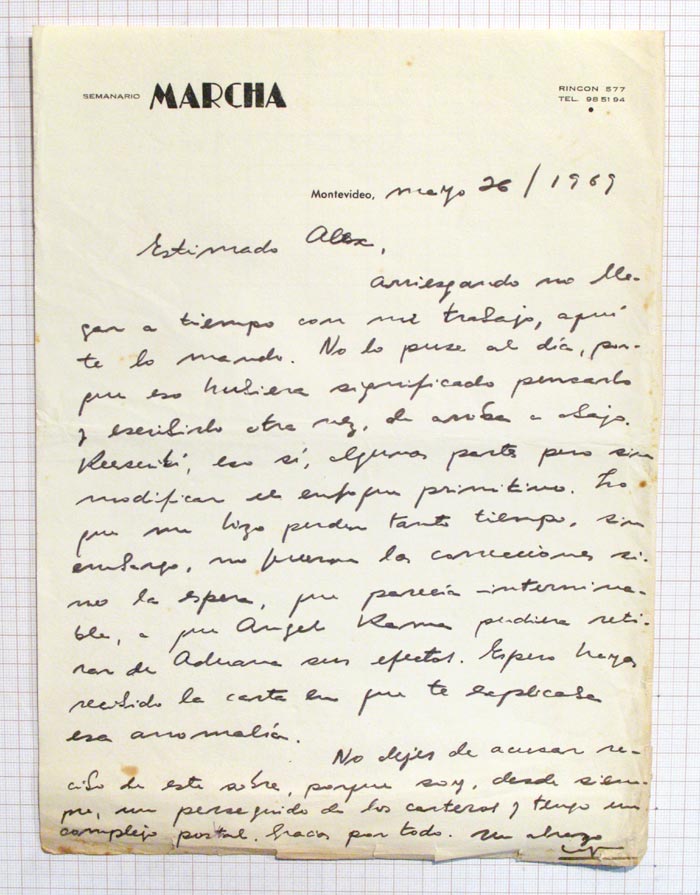 SEMANARIO MARCHA
RINCON 577
TEL. 98 51 94
Montevideo, mayo 26 / 1969
Estimado Alex,
arriesgando no lle-
gar a tiempo con mi trabajo, aquí
te lo mando. No lo puse al día, por-
que eso hubiera significado pensarlo
y escribirlo otra vez, de arriba a abajo.
Reescribí, eso sí, algunas partes pero sin
modificar el enfoque primitivo. Lo
que me hizo perder tanto tiempo, sin
embargo, no fueron las correcciones si-
no la espera, que parecía intermina-
ble, a que Angel Rama pudiera reti-
rar de Aduana sus efectos. Espero hayas
recibido la carta en que te explicaba
esa anomalía.
No dejes de acusar re-
cibo de este sobre, porque soy, desde siem-
pre, un perseguido de los carteros y tengo un
complejo postal. Gracias por todo. Un abrazo